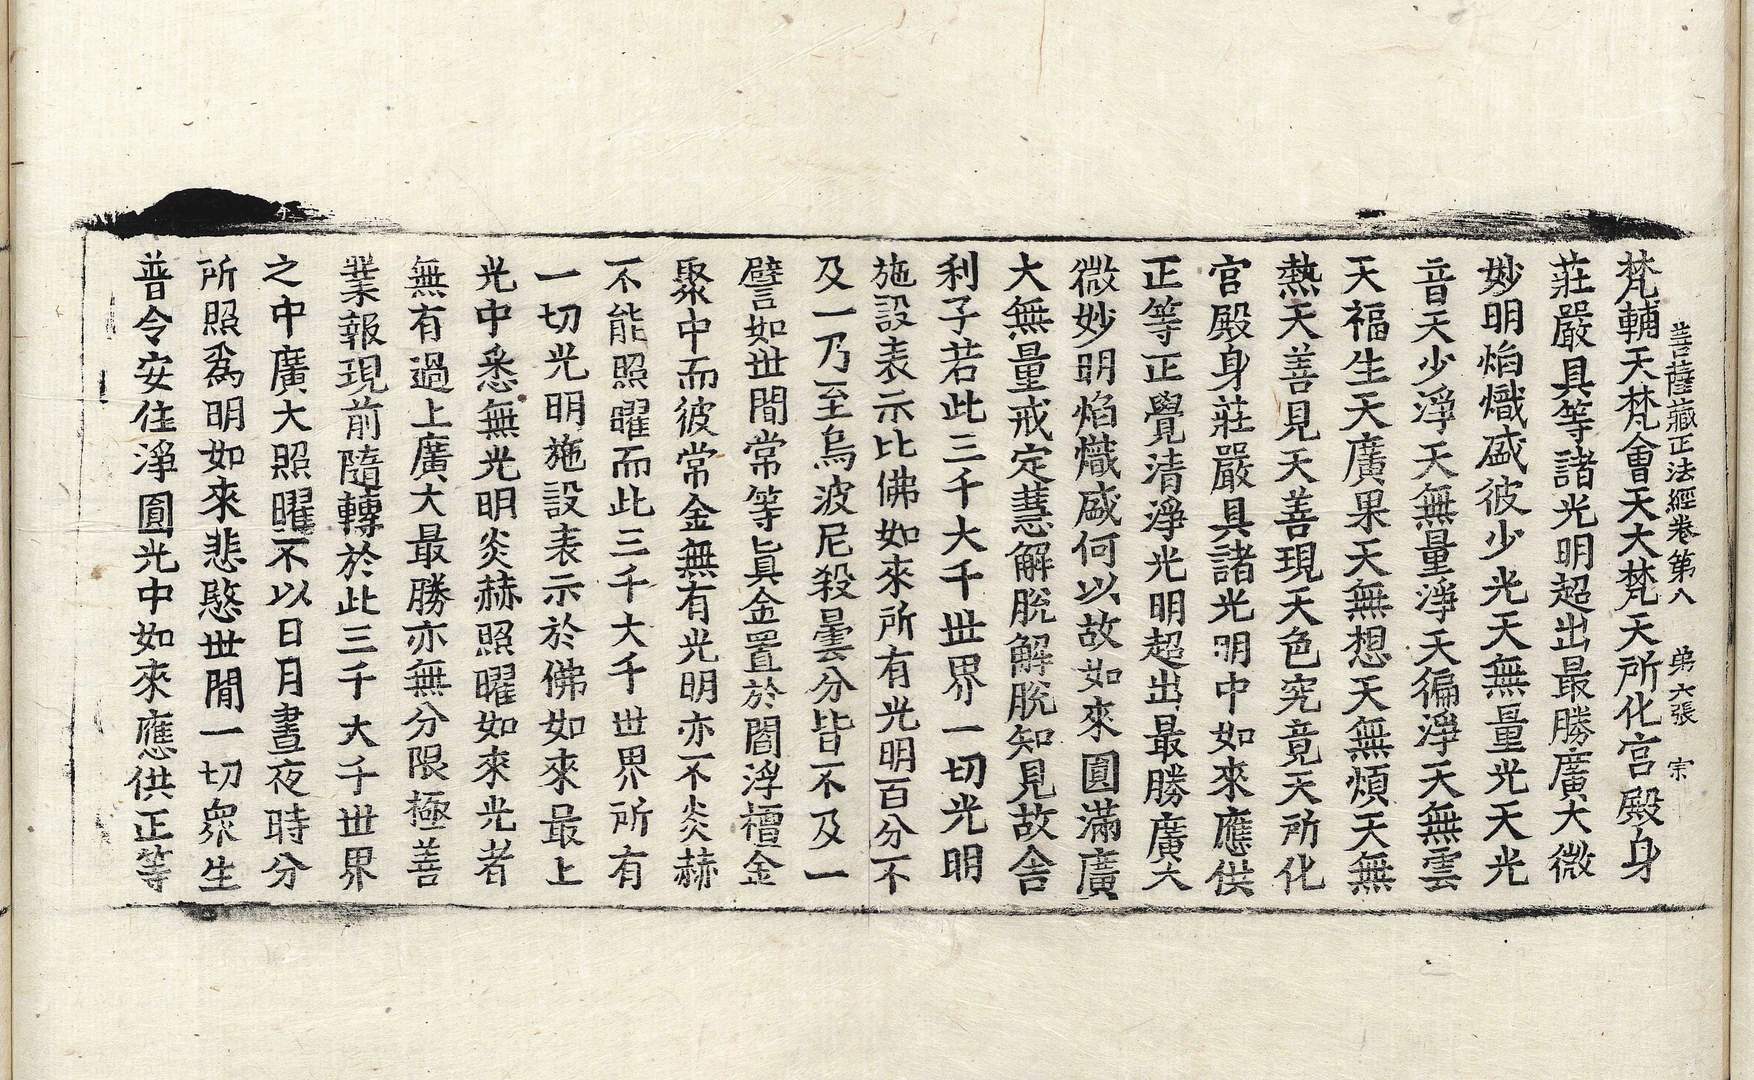 菩薩藏正法經卷第八 第六張 宗
梵輔天梵會天大梵天所化宮殿身
莊嚴具等諸光明超出最勝廣大微
妙明焰熾盛彼少光天無量光天光
音天少淨天無量淨天徧淨天無雲
天福生天廣果天無想天無煩天無
熱天善見天善現天色究竟天所化
宮殿身莊嚴具諸光明中如來應供
正等正覺清淨光明超出最勝廣大
微妙明焰熾盛何以故如來圓滿廣
大無量戒定慧解脫解脫知見故舍
利子若此三千大千世界一切光明
施設表示比佛如來所有光明百分不
及一乃至烏波尼殺曇分皆不及一
譬如世間常等眞金置於閻浮檀金
聚中而彼常金無有光明亦不炎赫
不能照曜而此三千大千世界所有
一切光明施設表示於佛如來最上
光中悉無光明炎赫照曜如來光者
無有過上廣大最勝亦無分限極善
業報現前隨轉於此三千大千世界
之中廣大照曜不以日月晝夜時分
所照爲明如來悲愍世間一切衆生
普令安住淨圓光中如來應供正等